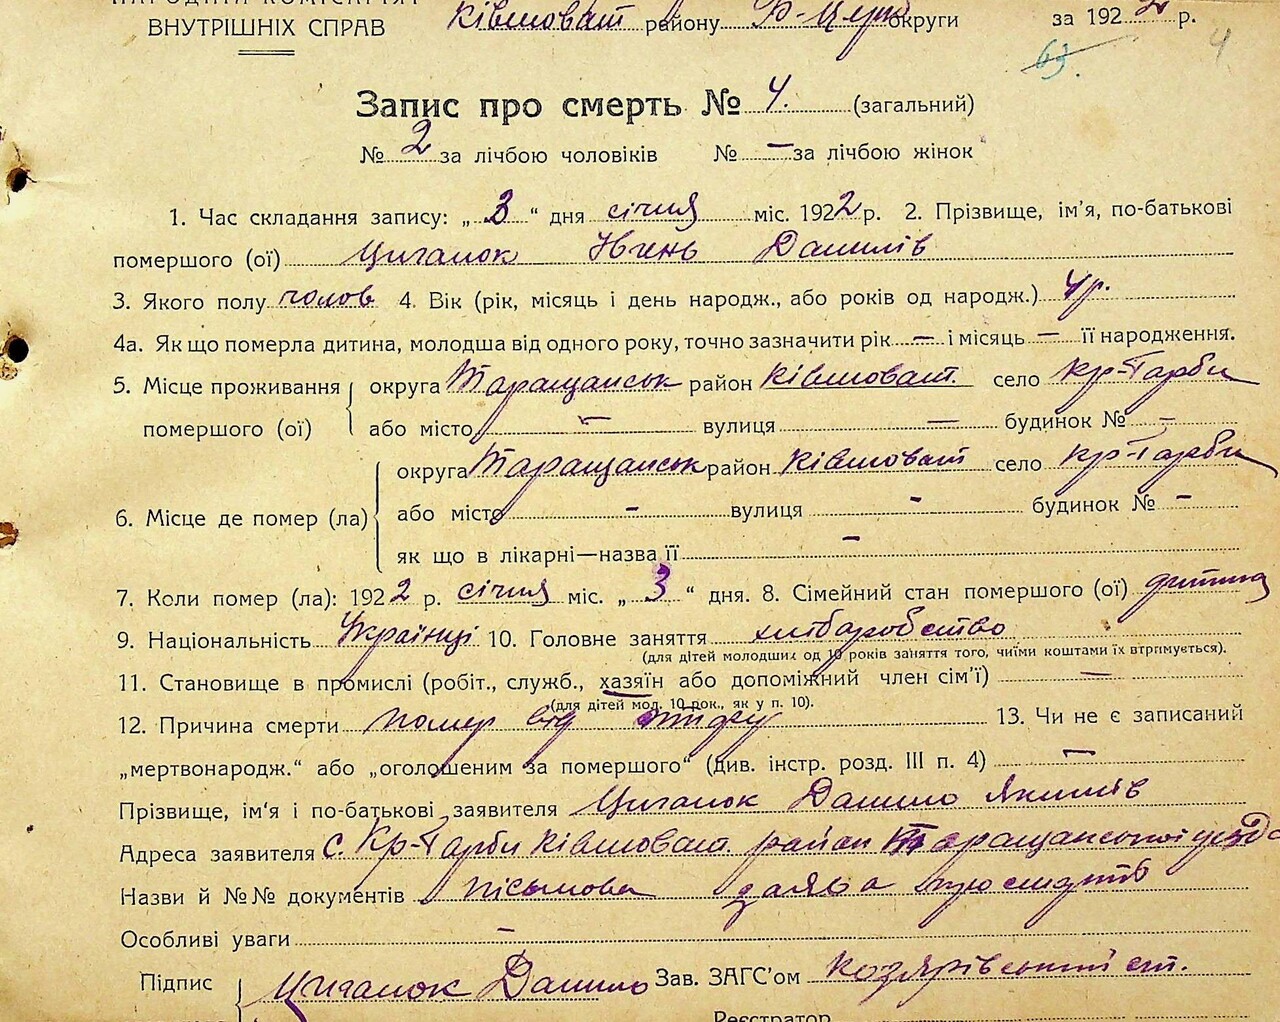 НАРОДНІЙ КОМІСАРІЯТ
ВНУТРІШНІХ СПРАВ
Ківшоват району Б-Церк округи за 1922 р.
63.
4
Запис про смерть № 4. (загальний)
№ 2 за лічбою чоловіків № — за лічбою жінок
1. Час складання запису: „ 3 “ дня січня міс. 1922 р. 2. Прізвище, ім'я, по-батькові
помершого (ої) Циганок Івгень Данилів
3. Якого полу чолов 4. Вік (рік, місяць і день народж., або років од народж.) 4 р.
4а. Як що померла дитина, молодша від одного року, точно зазначити рік — і місяць — її народження.
5. Місце проживання округа Таращанськ район Ківшоват. село Кр-Гарби
помершого (ої) або місто — вулиця — будинок № —
округа Таращанськ район Ківшоват село Кр-Гарби
6. Місце де помер (ла) або місто - вулиця - будинок № -
як що в лікарні—назва її -
7. Коли помер (ла): 1922 р. січня міс. „ 3 “ дня. 8. Сімейний стан помершого (ої) дитина
9. Національність Українці 10. Головне заняття хліборобство
(для дітей молодших од 10 років заняття того, чиїми коштами їх втримується).
11. Становище в промислі (робіт., служб., хазяїн або допоміжний член сім'ї) —
(для дітей мол. 10 рок., як у п. 10).
12. Причина смерти помер від тифу 13. Чи не є записаний
„мертвонародж.“ або „оголошеним за помершого“ (див. інстр. розд. III п. 4) —
Прізвище, ім'я і по-батькові заявителя Циганок Данило Якимів
Адреса заявителя с. Кр-Гарби Ківшоват. район Таращанської уезда
Назви й №№ документів письмова заява
Особливі уваги -
Підпис Циганок Данило Зав. ЗАГС'ом
Реєстратор